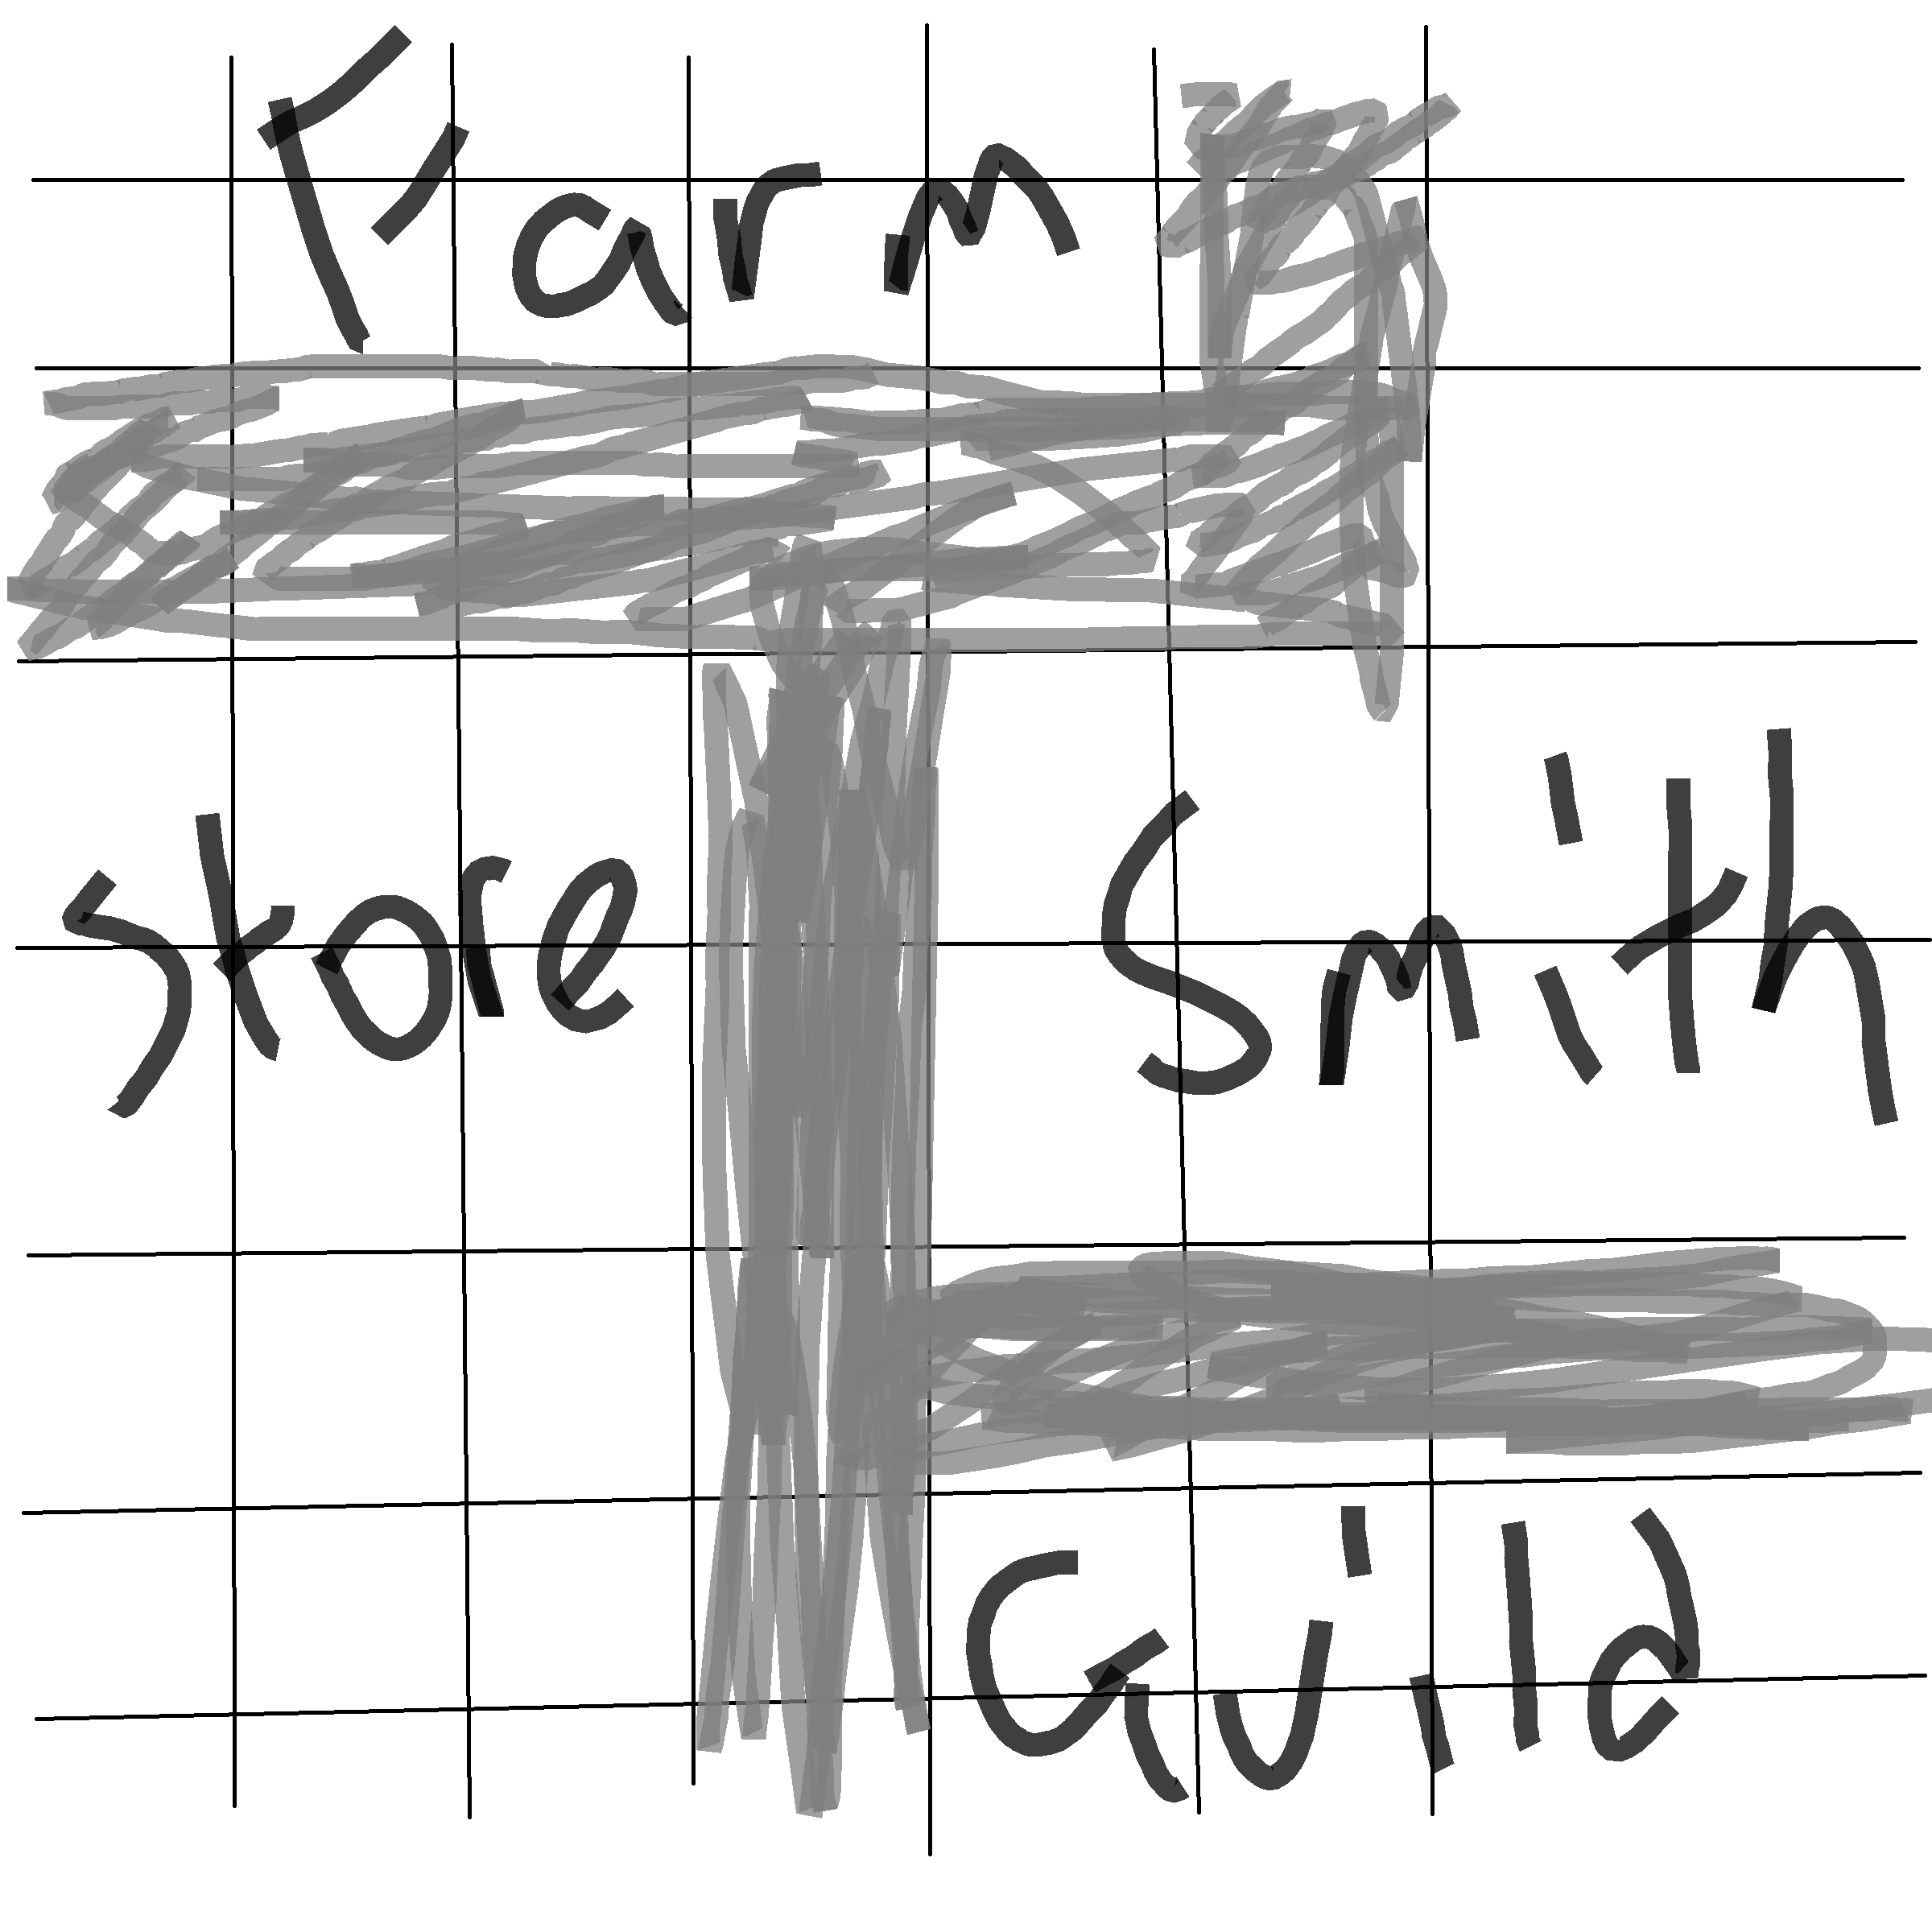 Farm
Store
Smith
Guild